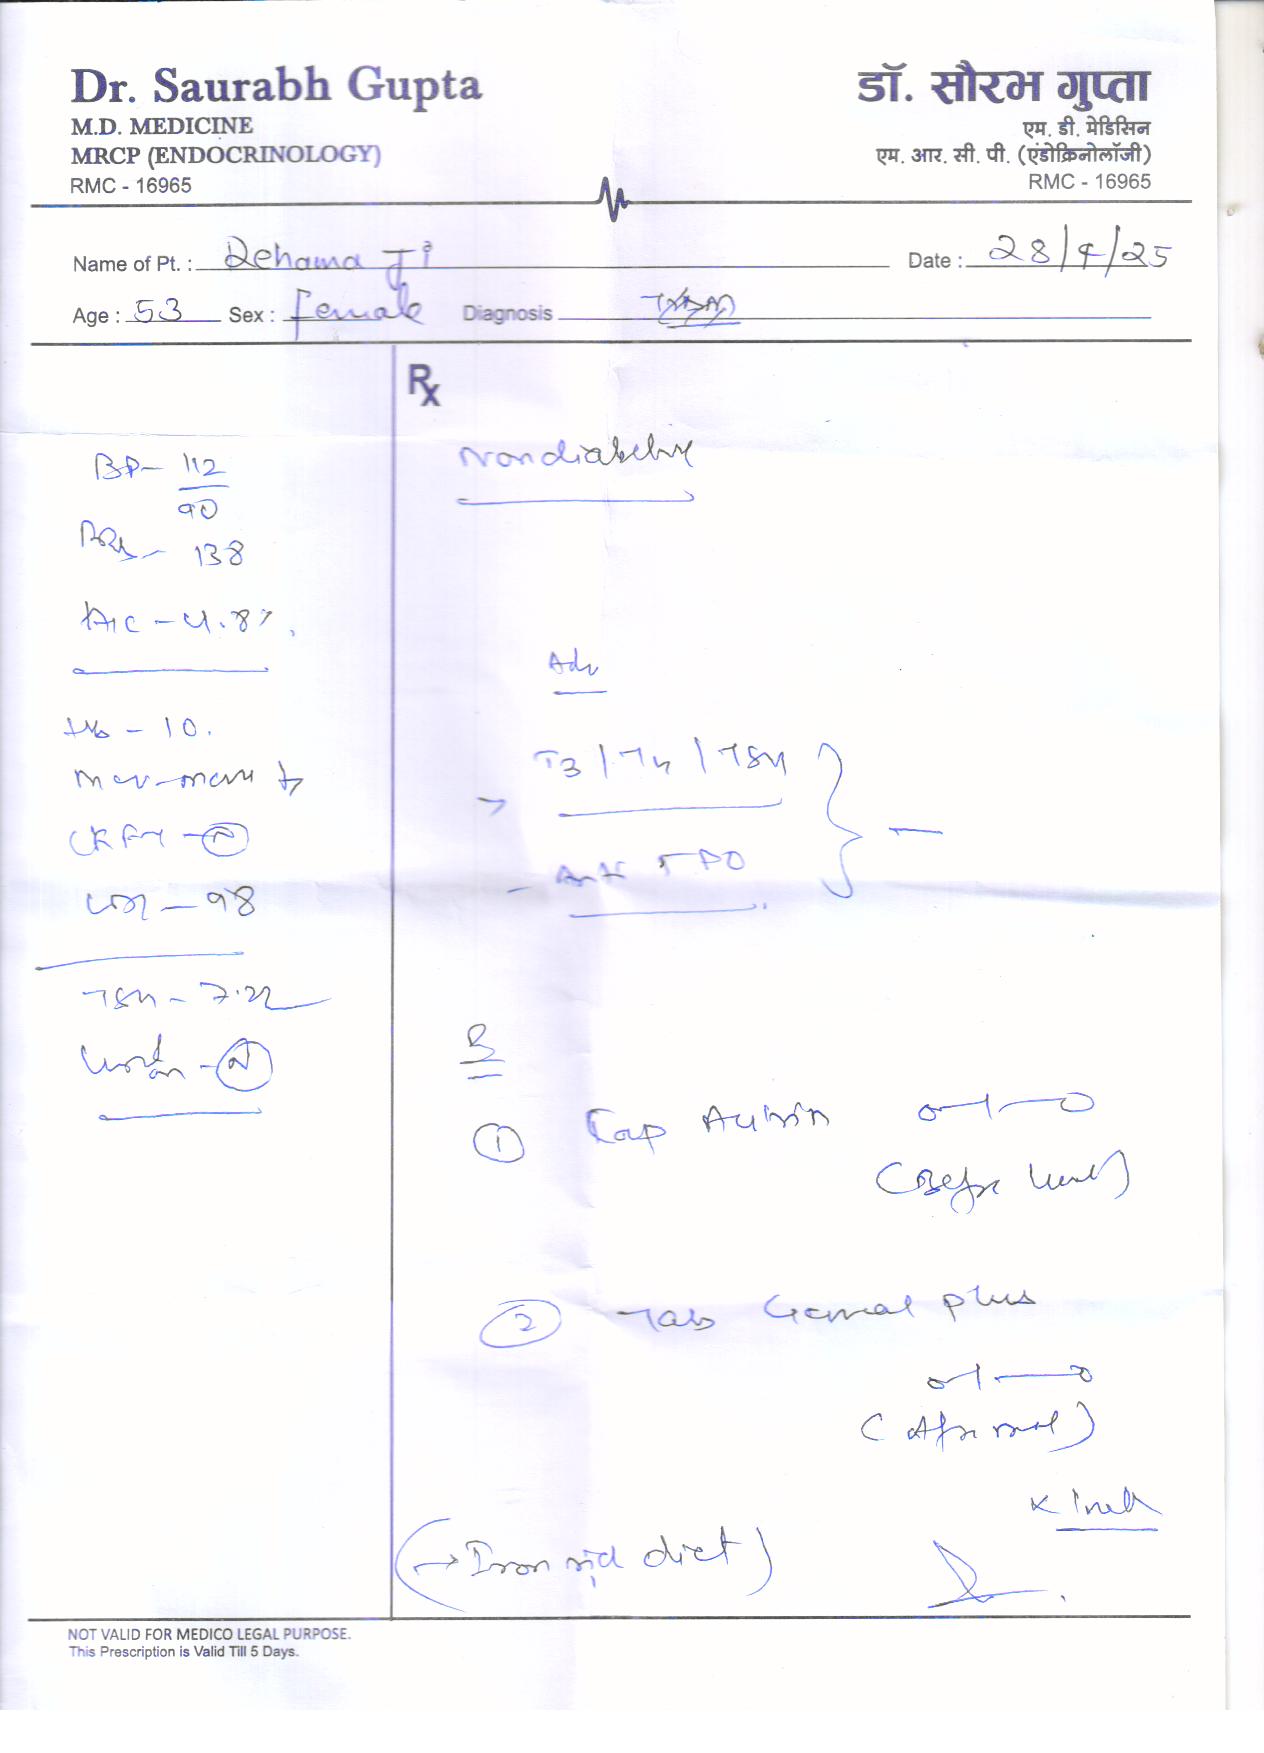 Dr. Saurabh Gupta
M.D. MEDICINE
MRCP (ENDOCRINOLOGY)
RMC - 16965
डॉ. सौरभ गुप्ता
एम. डी. मेडिसिन
एम. आर. सी. पी. (एंडोक्रिनोलॉजी)
RMC - 16965
Name of Pt. : Rehama Ji
Date : 28/4/25
Age : 53 Sex : Female Diagnosis
Rx
BP - 112/90
138
A1c - 4.8%.
Hb - 10.
N
98
TSH - 7.22
N
Nondiabetic
Adv
T3 / T4 / TSH
- Anti TPO
① Cap 0-1-0
② Tab plus
0-1-0
(After meal)
(→ Iron rich diet)
NOT VALID FOR MEDICO LEGAL PURPOSE.
This Prescription is Valid Till 5 Days.